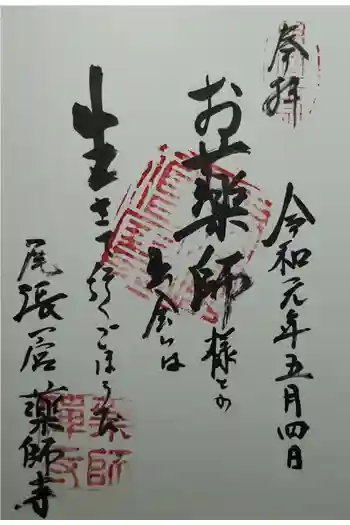 奉拝
令和元年五月四日
お薬師様との
出会いは
生きて行くごほうび
尾張一宮 薬師寺